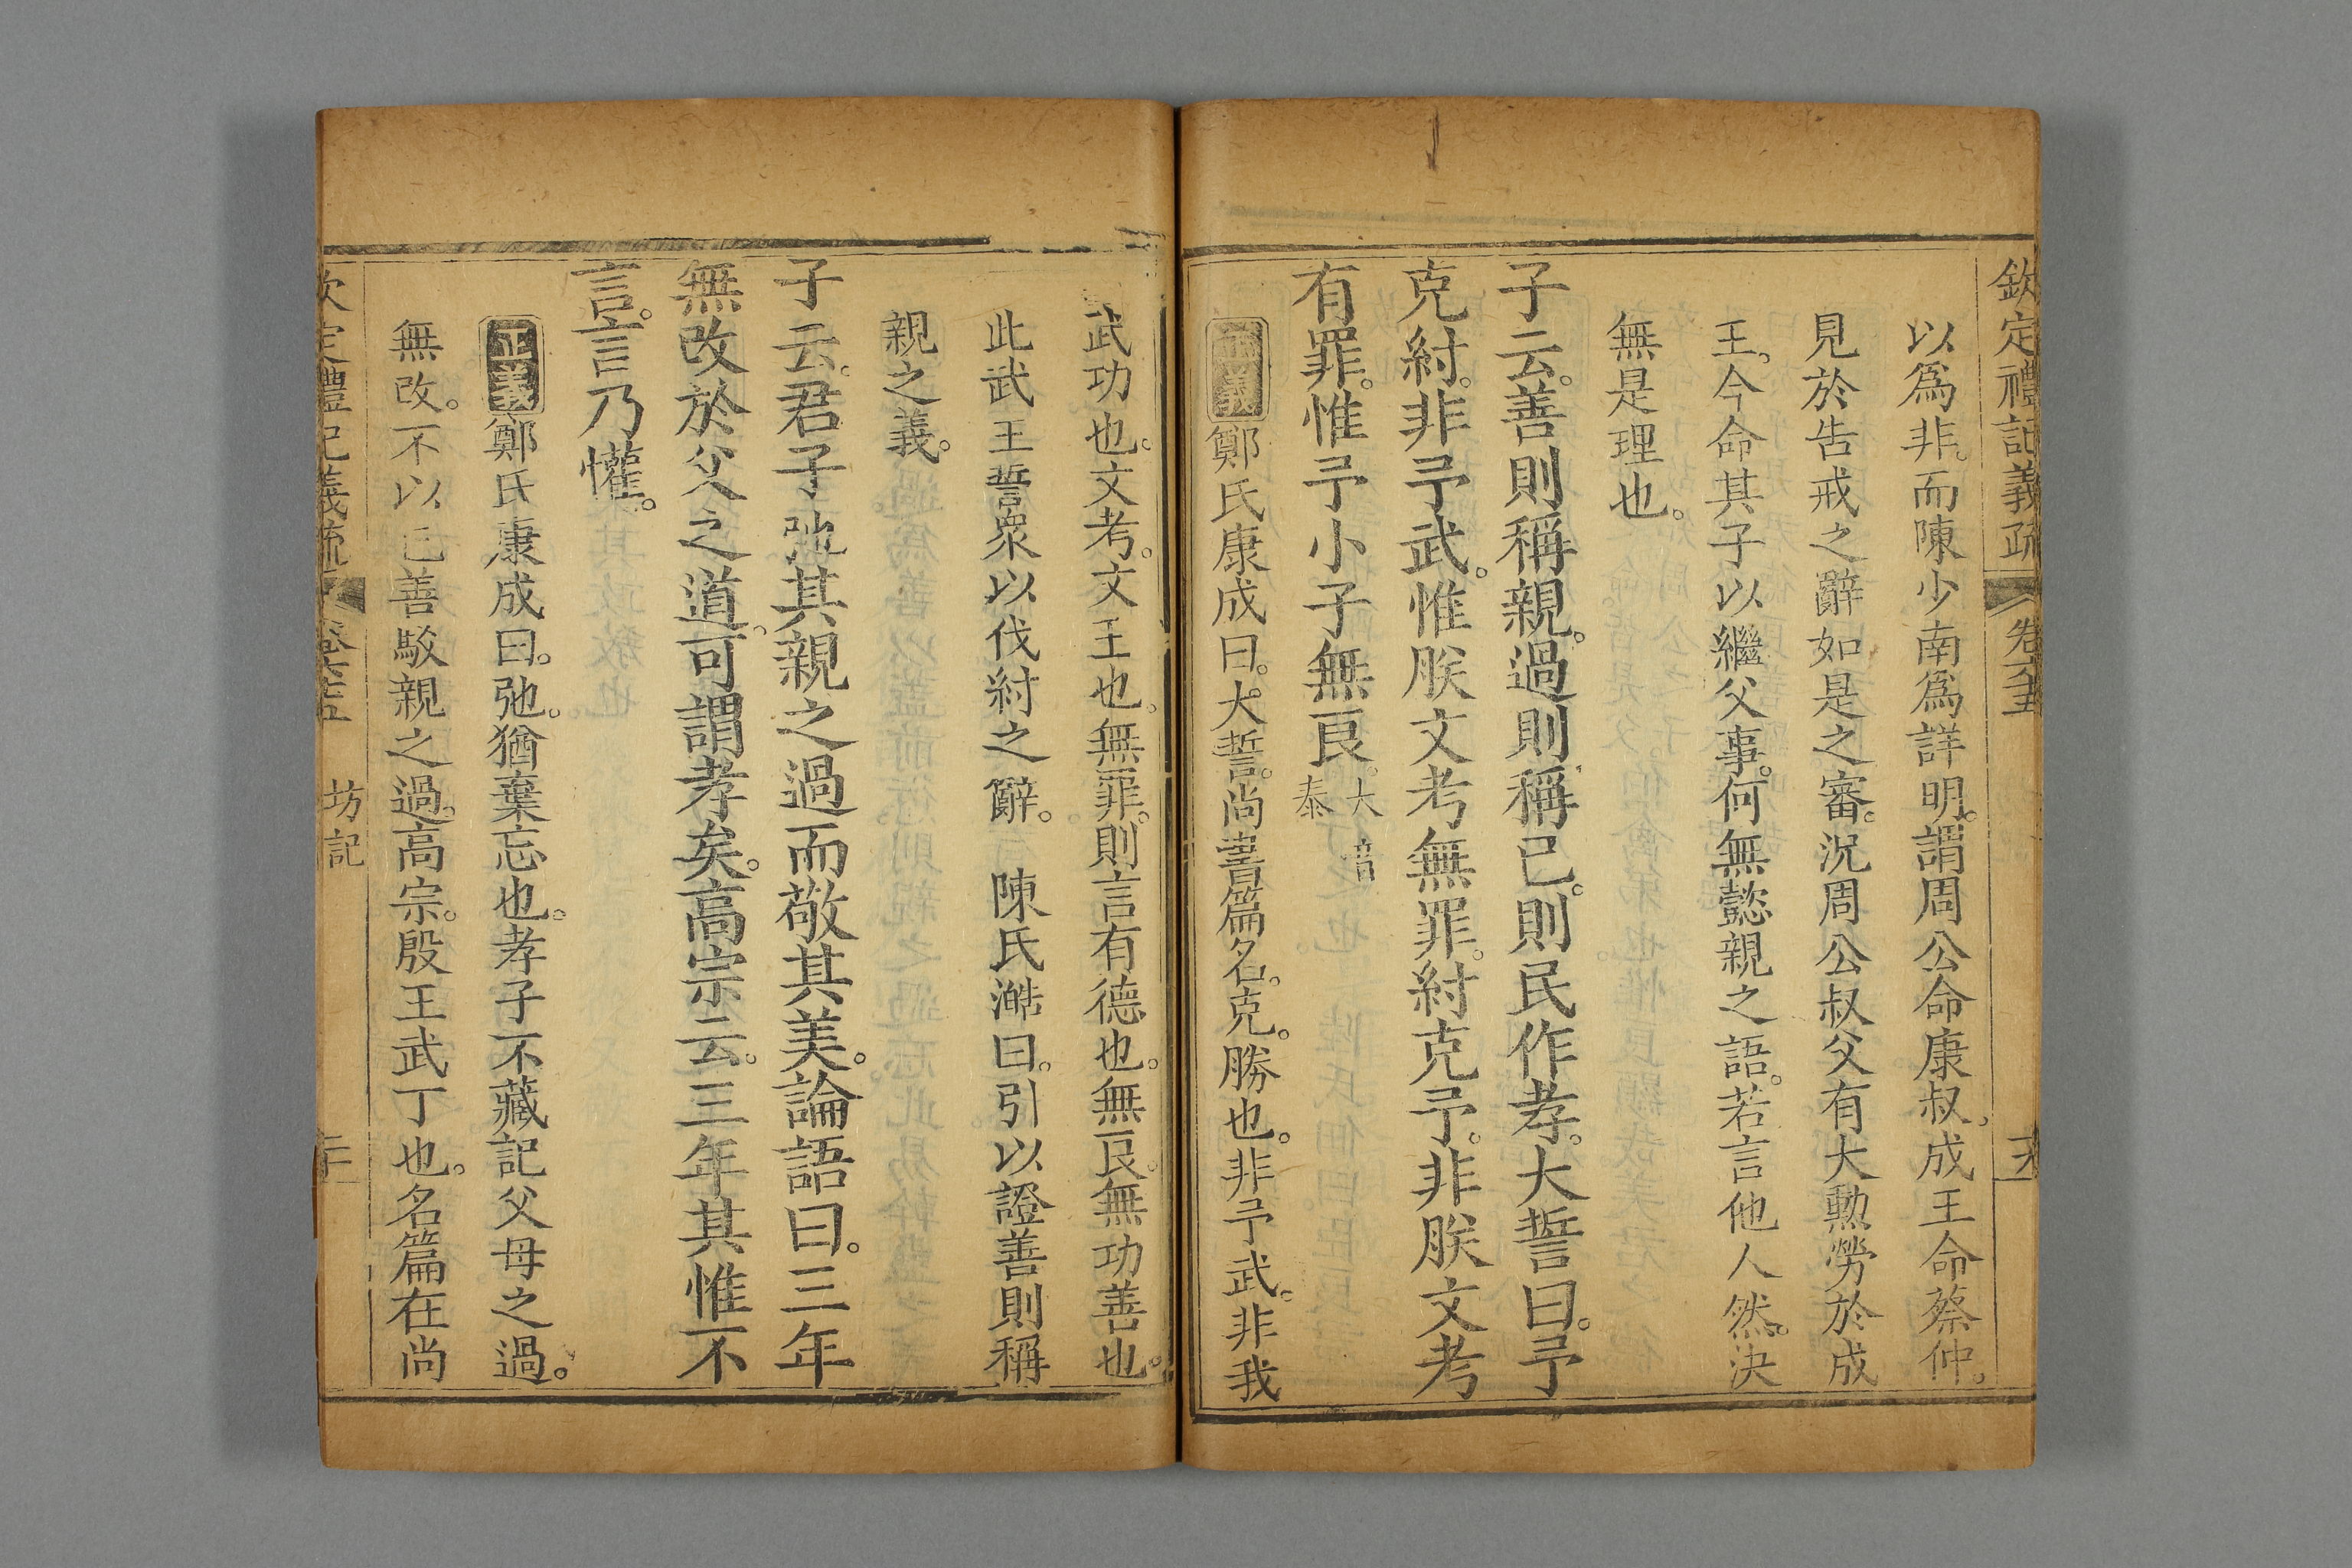 欽定禮記義疏 卷六十五 十九
以爲非。而陳少南爲詳明。謂周公命康叔。成王命蔡仲。
見於告戒之辭如是之審。況周公叔父有大勳勞於成
王。今命其子以繼父事。何無懿親之語。若言他人然。決
無是理也。
子云。善則稱親。過則稱已。則民作孝。大誓曰。予
克紂。非予武。惟朕文考無罪。紂克予。非朕文考
有罪。惟予小子無良。大音泰
正義鄭氏康成曰。大誓。尚書篇名。克。勝也。非予武。非我
武功也。文考。文王也。無罪。則言有德也。無良。無功善也。
此武王誓眾以伐紂之辭。 陳氏澔曰。引以證善則稱
親之義。
子云。君子弛其親之過而敬其美。論語曰。三年
無改於父之道。可謂孝矣。高宗云。三年其惟不
言。言乃懽。
正義鄭氏康成曰。弛。猶棄忘也。孝子不藏記父母之過。
無改。不以己善駁親之過。高宗。殷王武丁也。名篇在尚
欽定禮記義疏 卷六十五 坊記 二十